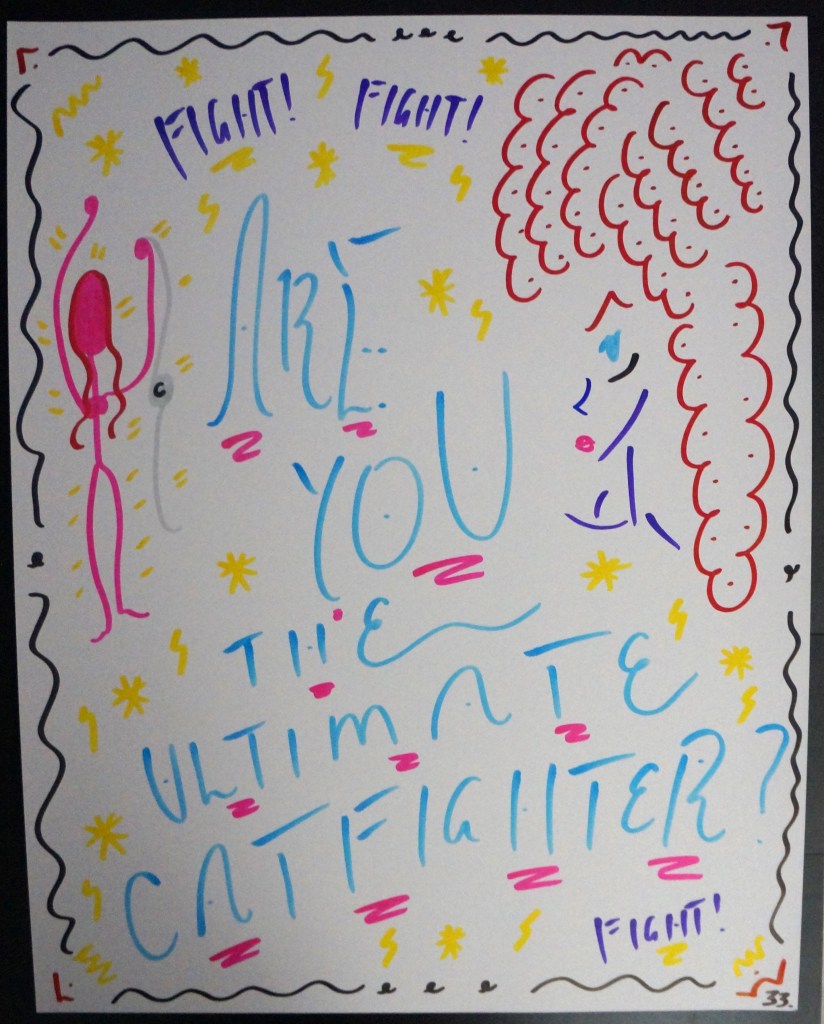 FIGHT! FIGHT!
ARE
YOU
THE
ULTIMATE
CATFIGHTER?
FIGHT!
33.